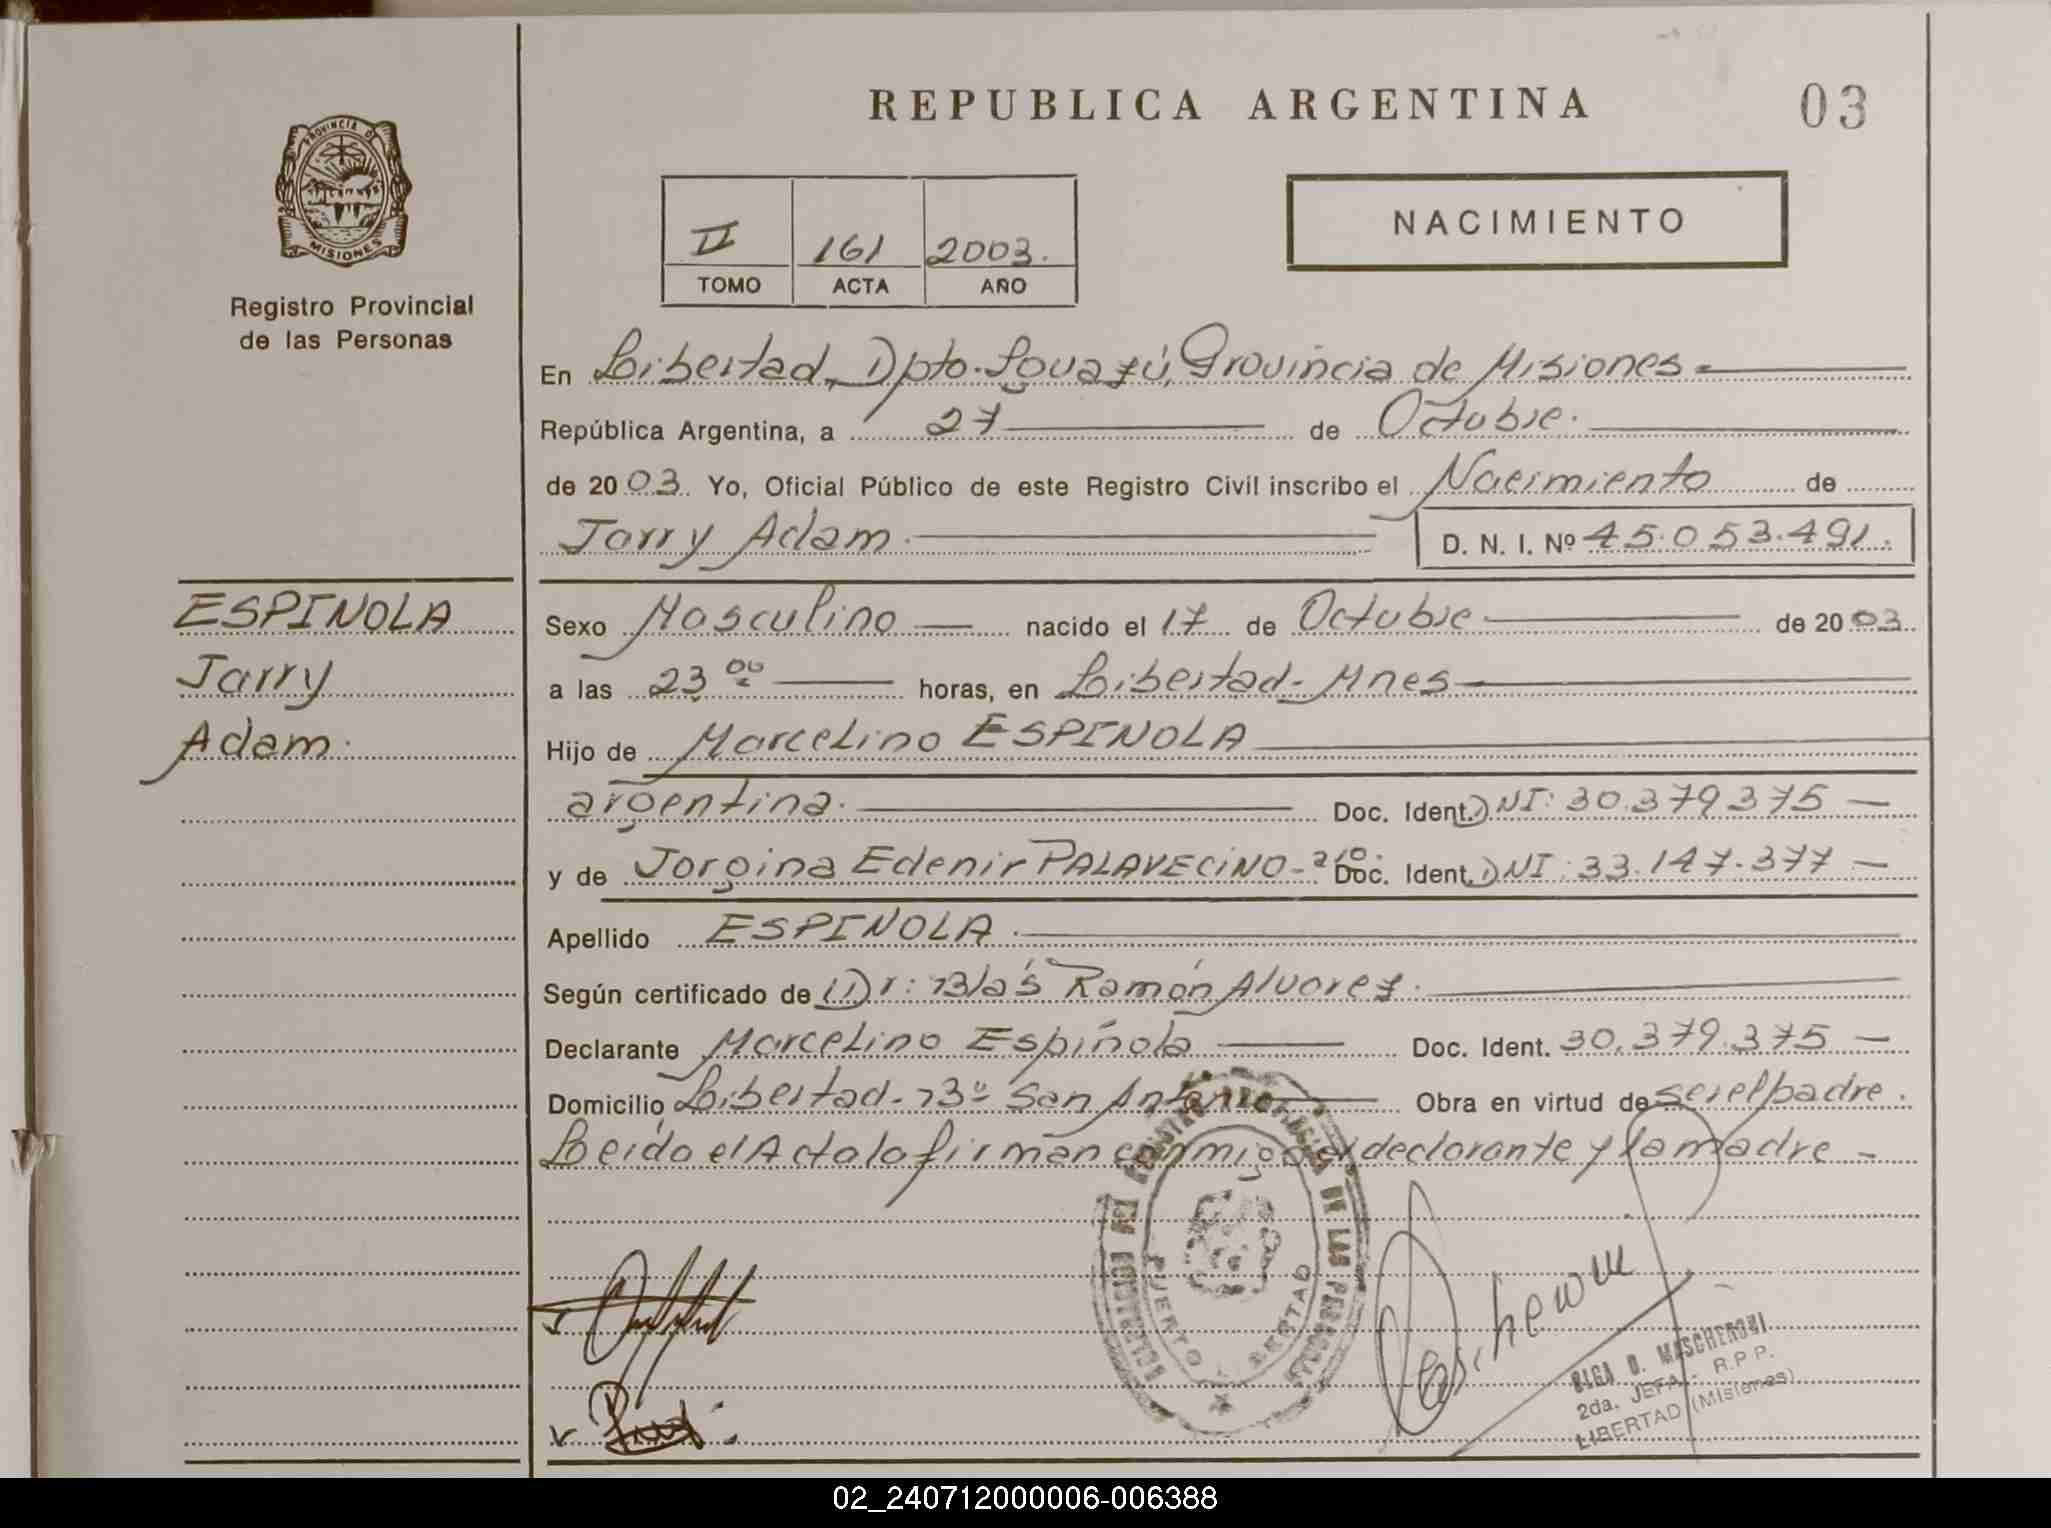 REPUBLICA ARGENTINA
03
PROVINCIA D
MISIONES
Registro Provincial
de las Personas
NACIMIENTO
II 161 2003.
TOMO ACTA AÑO
En Libertad, Dpto. Iguazú, Provincia de Misiones
República Argentina, a 27 de Octubre.
de 2003. Yo, Oficial Público de este Registro Civil inscribo el Nacimiento de
Jarry Adam. D. N. I. Nº 45.053.491.
ESPINOLA
Jarry
Adam.
Sexo Masculino nacido el 17 de Octubre de 2003
a las 23 00 horas, en Libertad - Mnes
Hijo de Marcelino ESPINOLA
argentina. Doc. Ident. DNI: 30.379.375
y de Jorgina Edenir PALAVECINO - Doc. Ident. DNI: 33.147.377
Apellido ESPINOLA
Según certificado de Dr: Blás Ramón Alvarez.
Declarante Marcelino Espíñola Doc. Ident. 30.379.375
Domicilio Libertad - Bº San Antonio Obra en virtud de ser el padre.
Leida el Acta la firman conmigo el declarante y la madre
DEL REGISTRO PROVINCIAL DE LAS PERSONAS
PUERTO LIBERTAD
OLGA D. MASCHERONI
2da. JEFA - R.P.P.
LIBERTAD (Misiones)
02_240712000006-006388